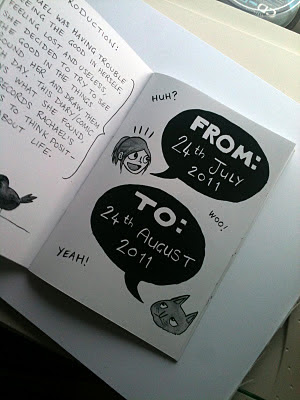 RODUCTION:
AEL WAS HAVING TROUBLE
EEING THE GOOD IN HERSELF.
EELING LOST AND USELESS,
SHE DECIDED TO TRY TO SEE
HE GOOD IN
OUND HER AND DRAW THEM
CH DAY. THIS DIARY/COMIC
S WHAT SHE FOUND
RECORDS RACHAEL'S
TO THINK POSIT-
ABOUT LIFE.
HUH?
FROM:
24th JULY
2011
WOO!
TO:
24th AUGUST
2011
YEAH!